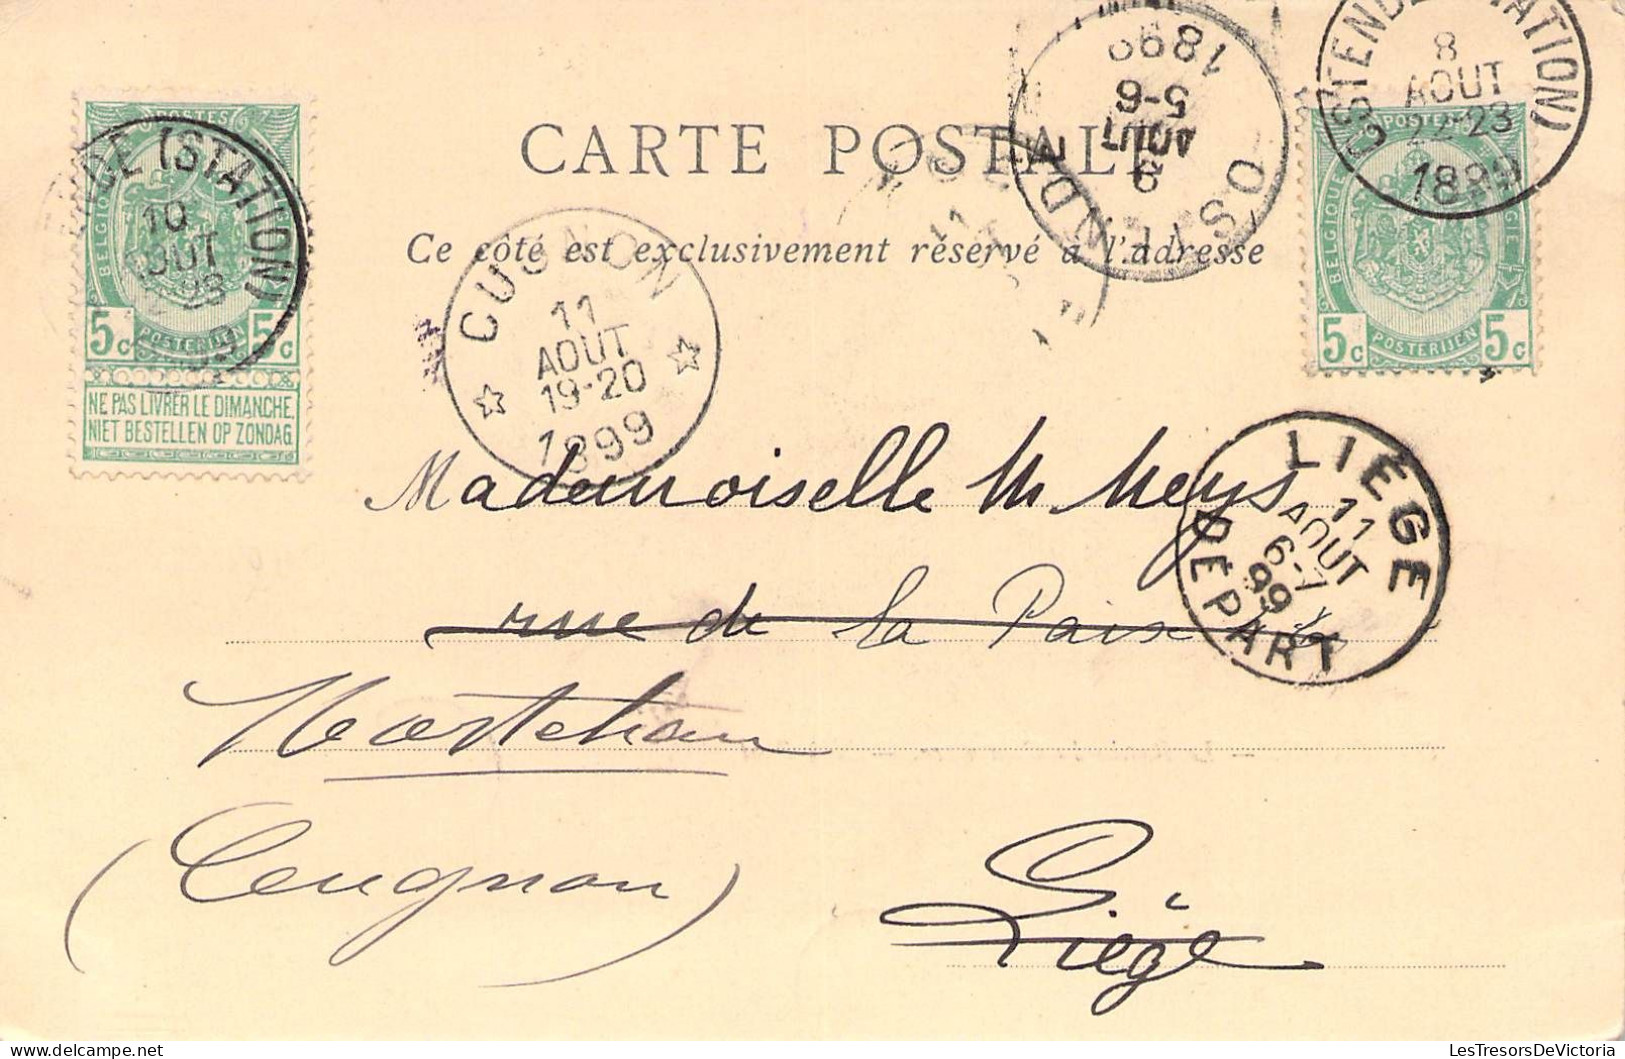 CARTE POSTALE
Ce côté est exclusivement réservé à l'adresse
POSTES
BELGIQUE
5c 5c
POSTERIJEN
NE PAS LIVRER LE DIMANCHE.
NIET BESTELLEN OP ZONDAG.
ENDE (STATION)
10
AOUT
CUGNON
11
AOUT
19-20
1899
OSTENDE
9
AOUT
5-6
1899
OSTENDE (STATION)
8
AOUT
22-23
1899
POSTES
BELGIQUE
5c 5c
POSTERIJEN
LIÉGE
11
AOUT
6-7
99
DÉPART
Mademoiselle M Meys
rue de la Paix
Mortehan
(Cugnon)
Liège
LesTresorsDeVictoria